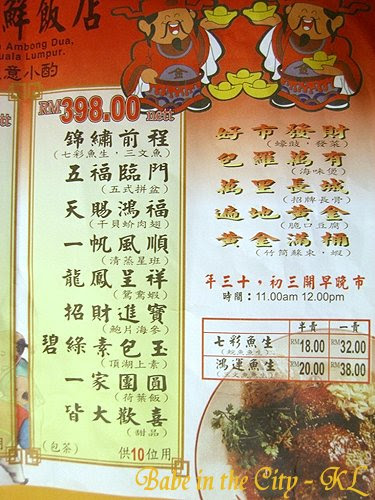 鮮飯店
Ambong Dua,
uala Lumpur.
意小酌
ett
RM398.00nett
錦繡前程
(七彩魚生，三文魚)
五福臨門
(五式拼盆)
天賜鴻福
(干貝蚧肉翅)
一帆風順
(清蒸星班)
龍鳳呈祥
(鴛鴦蝦)
招財進寶
(鮑片海參)
碧綠素包玉
(頂湖上素)
一家團圓
(荷葉飯)
皆大歡喜
(甜品)
(包茶) 供10位用
用
好市發財
(蠔豉，發菜)
包羅萬有
(海味煲)
萬里長城
(招牌長骨)
遍地黃金
(脆口豆腐)
黃金滿桶
(竹筒蘇東，蝦)
年三十，初三開早晚市
時間：11.00am 12.00pm
半賣 一賣
七彩魚生 RM18.00 RM32.00
鴻運魚生 RM20.00 RM38.00
Babe in the City - KL